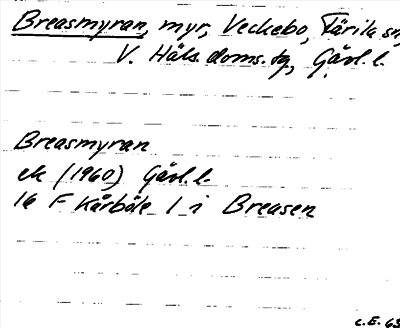 Breasmyran, myr, Veckebo, Färila sn,
V. Häls. doms.tg, Gävl. l.
Breasmyran
ek (1960) Gävl. l.
16 F Kårböle 1 i Breasen
C.E. 63